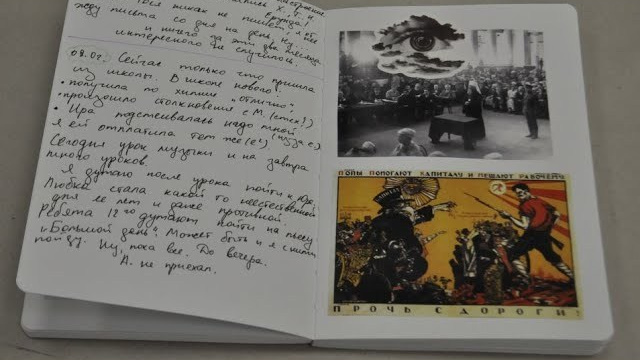 Х. Т. и
Тося никак не пишет,
жду письма со дня на день, Ну...
и ничего за эти два месяца
интересного не случилось.
08.02. Сейчас только что пришла
из школы. В школе нового:
• получила по химии "отлично",
• произошло столкновение с М.
• Ира подсмеивалась надо мной
я ей отплатила тем же (е!)
Сегодня урок музыки и на завтра
много уроков.
Я думаю после урока пойти к Юре.
Любка стала какой то неестественной
для ее лет и даже противной.
Ребята 12го думают пойти на пьесу
"Большой день". Может быть и я с ними
пойду. Ну, пока все. До вечера.
А. не приехал.
Попы помогают капиталу и мешают рабочему
ПРОЧЬ С ДОРОГИ!